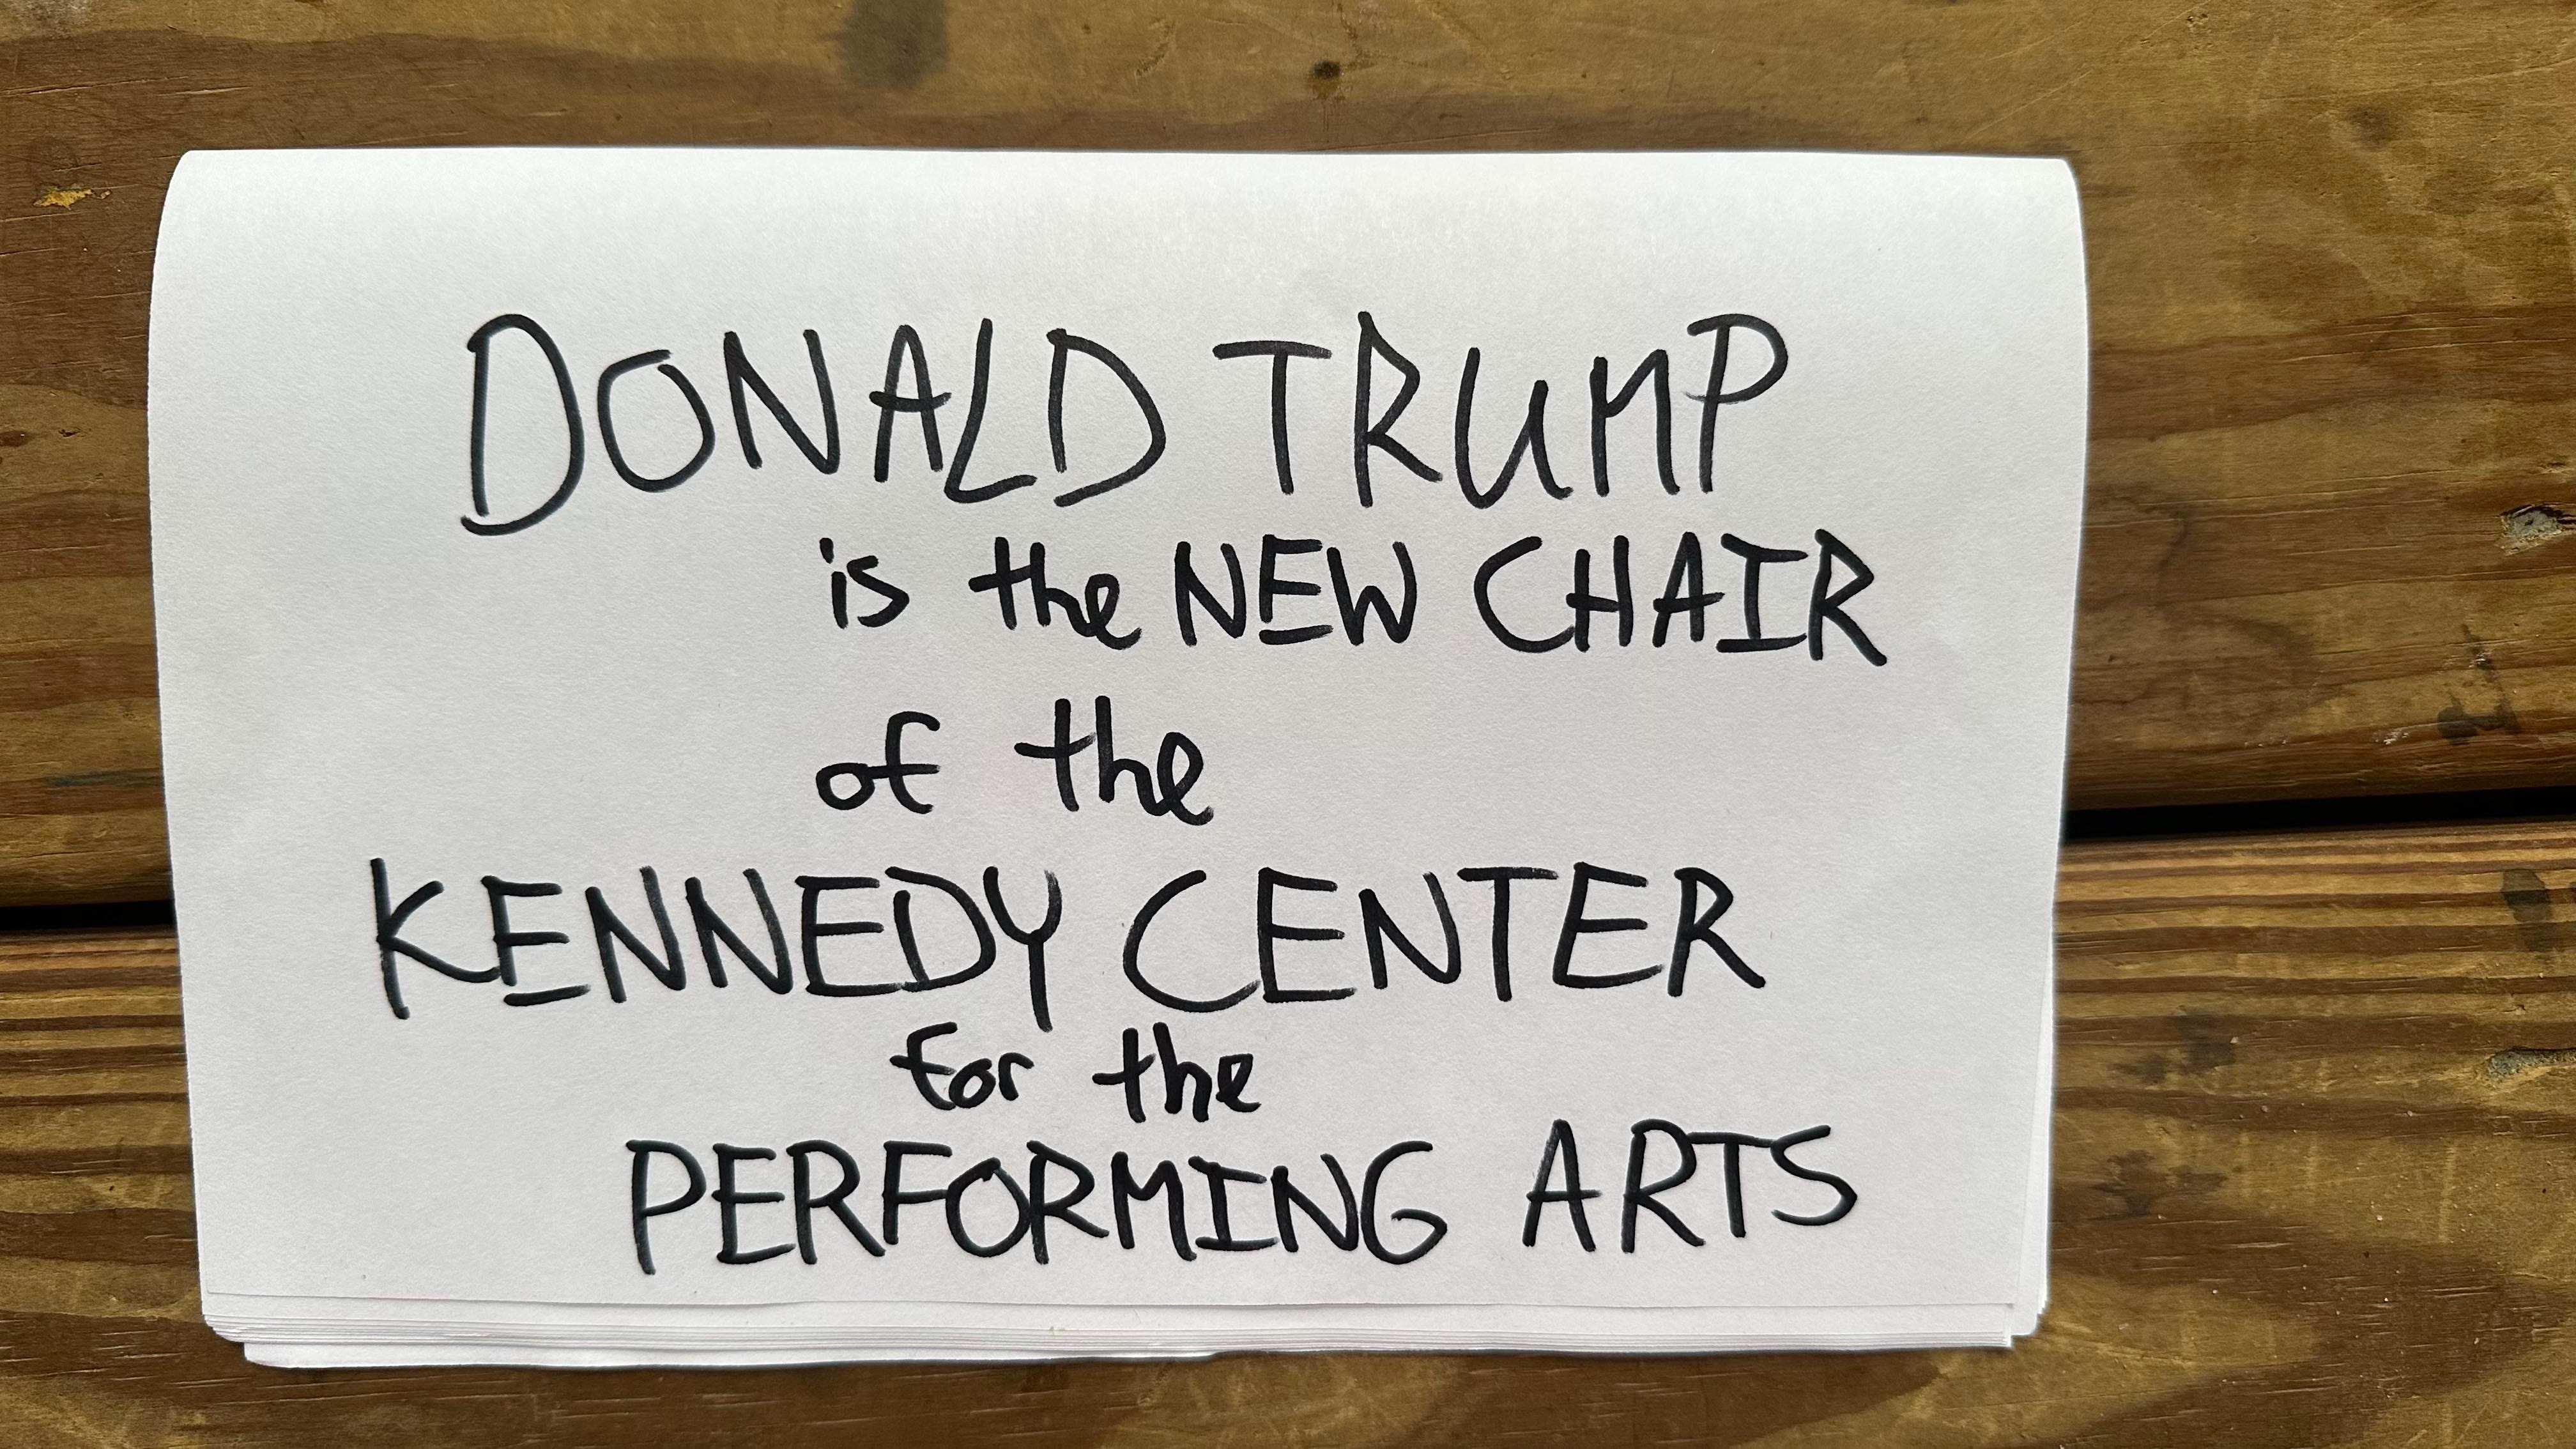 DONALD TRUMP
is the NEW CHAIR
of the
KENNEDY CENTER
for the
PERFORMING ARTS